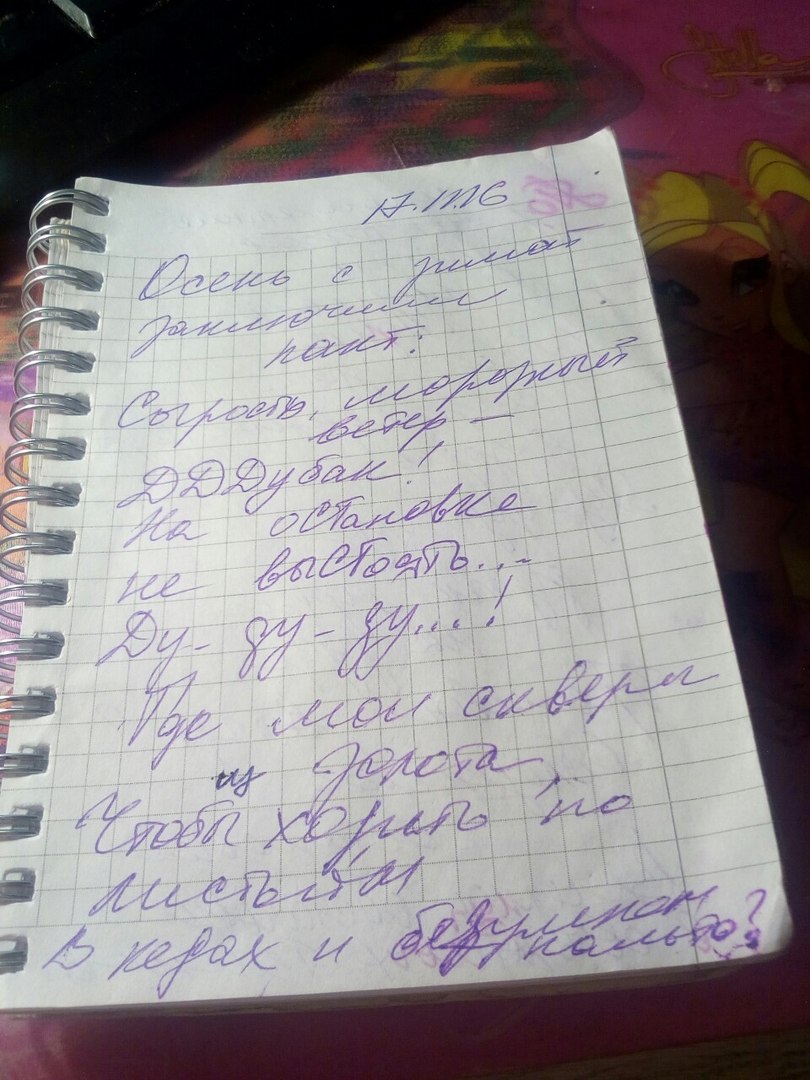 Stella
Осень с зимой
заключили
пакт:
Сырость, морозный
ветер –
ДДДубак!
На остановке
не выстоять...
Ду-ду-ду...!
Где мои скверы
из золота,
Чтобы ходить по
листьям
В кедах и безумном
пальто?